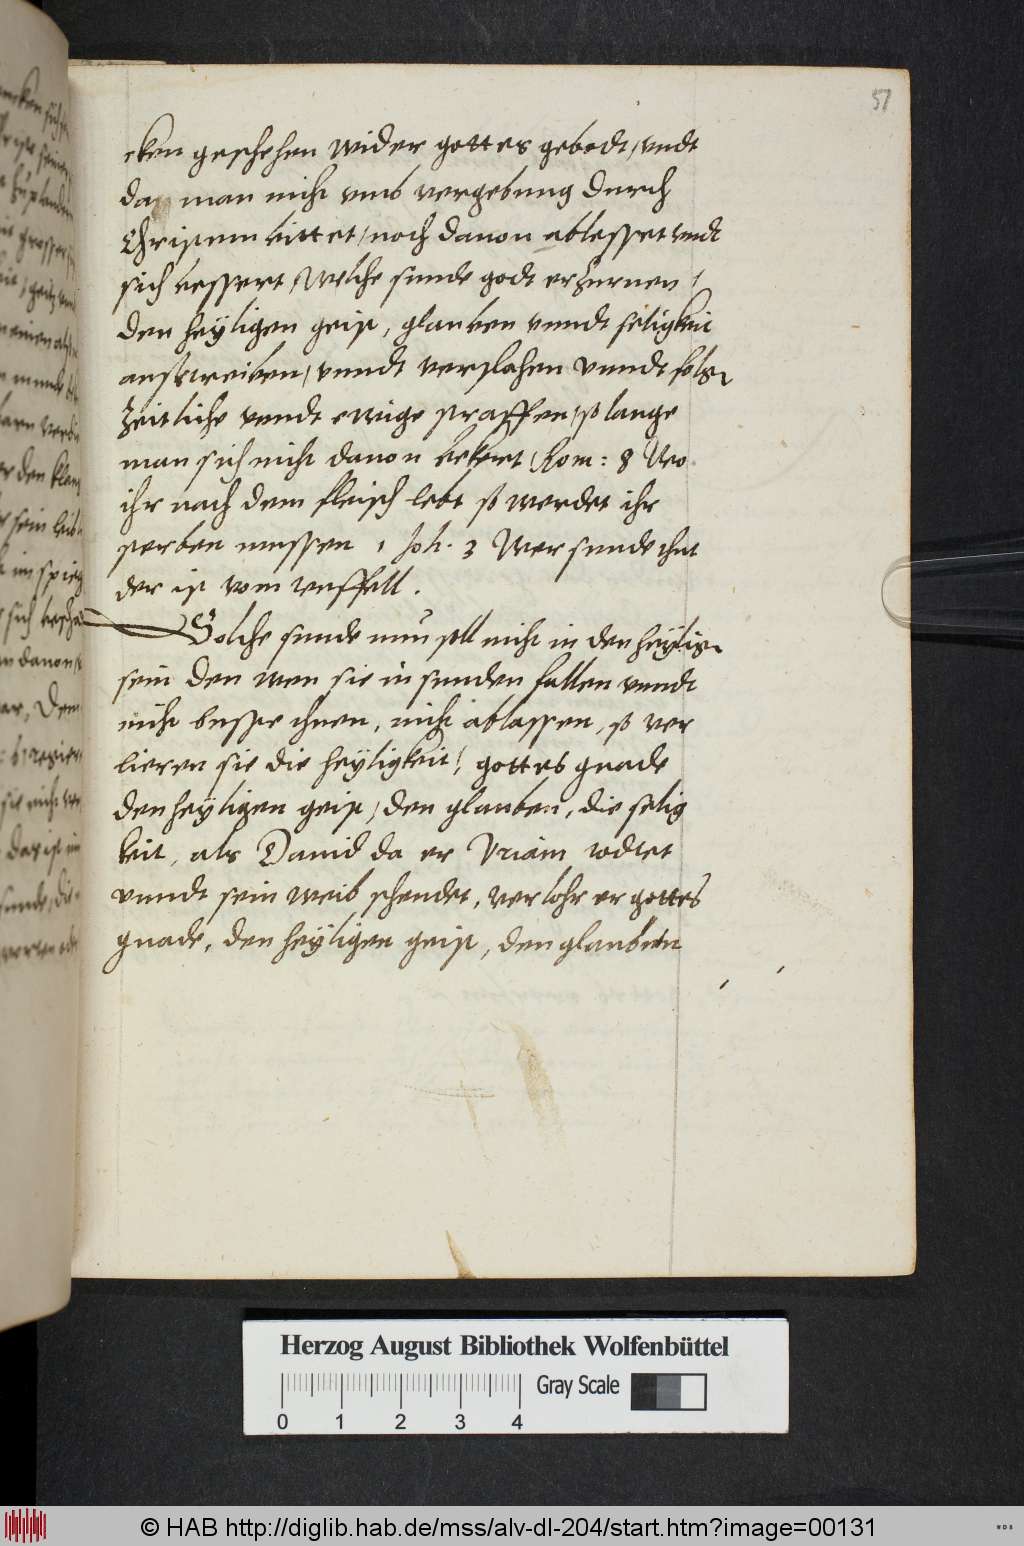 57
cken geschehen wider gottes gebodt, vndt
das man nicht vmb vergebung durch
Christum bittet, noch dauon ablesset vndt
sich bessert, Welche sunde godt erzurnen,
den heÿligen geist, glauben vnndt seligkeit
außtreiben, vnndt verslahen vnndt
zeitliche vnndt ewige straffen, so lange
man sich nicht dauon bekert, Rom: 8 Wo
ihr nach dem fleisch lebt so werdet ihr
sterben mussen 1 Joh. 3 Wer sunde thut
der ist vom teuffell.
Solche sunde nun soll nicht in den heÿligen
sein den wen sie in sunden fallen vnndt
nicht busse thuen, nicht ablassen, so ver
lieren sie die heÿligkeit, gottes gnade
den heÿligen geist, den glauben, die selig
keit, als Dauid da er Vriam todtet
vnndt sein weib schendet, verlohr er gottes
gnade, den heÿligen geist, den glauben
Herzog August Bibliothek Wolfenbüttel
Gray Scale
0 1 2 3 4
© HAB http://diglib.hab.de/mss/alv-dl-204/start.htm?image=00131